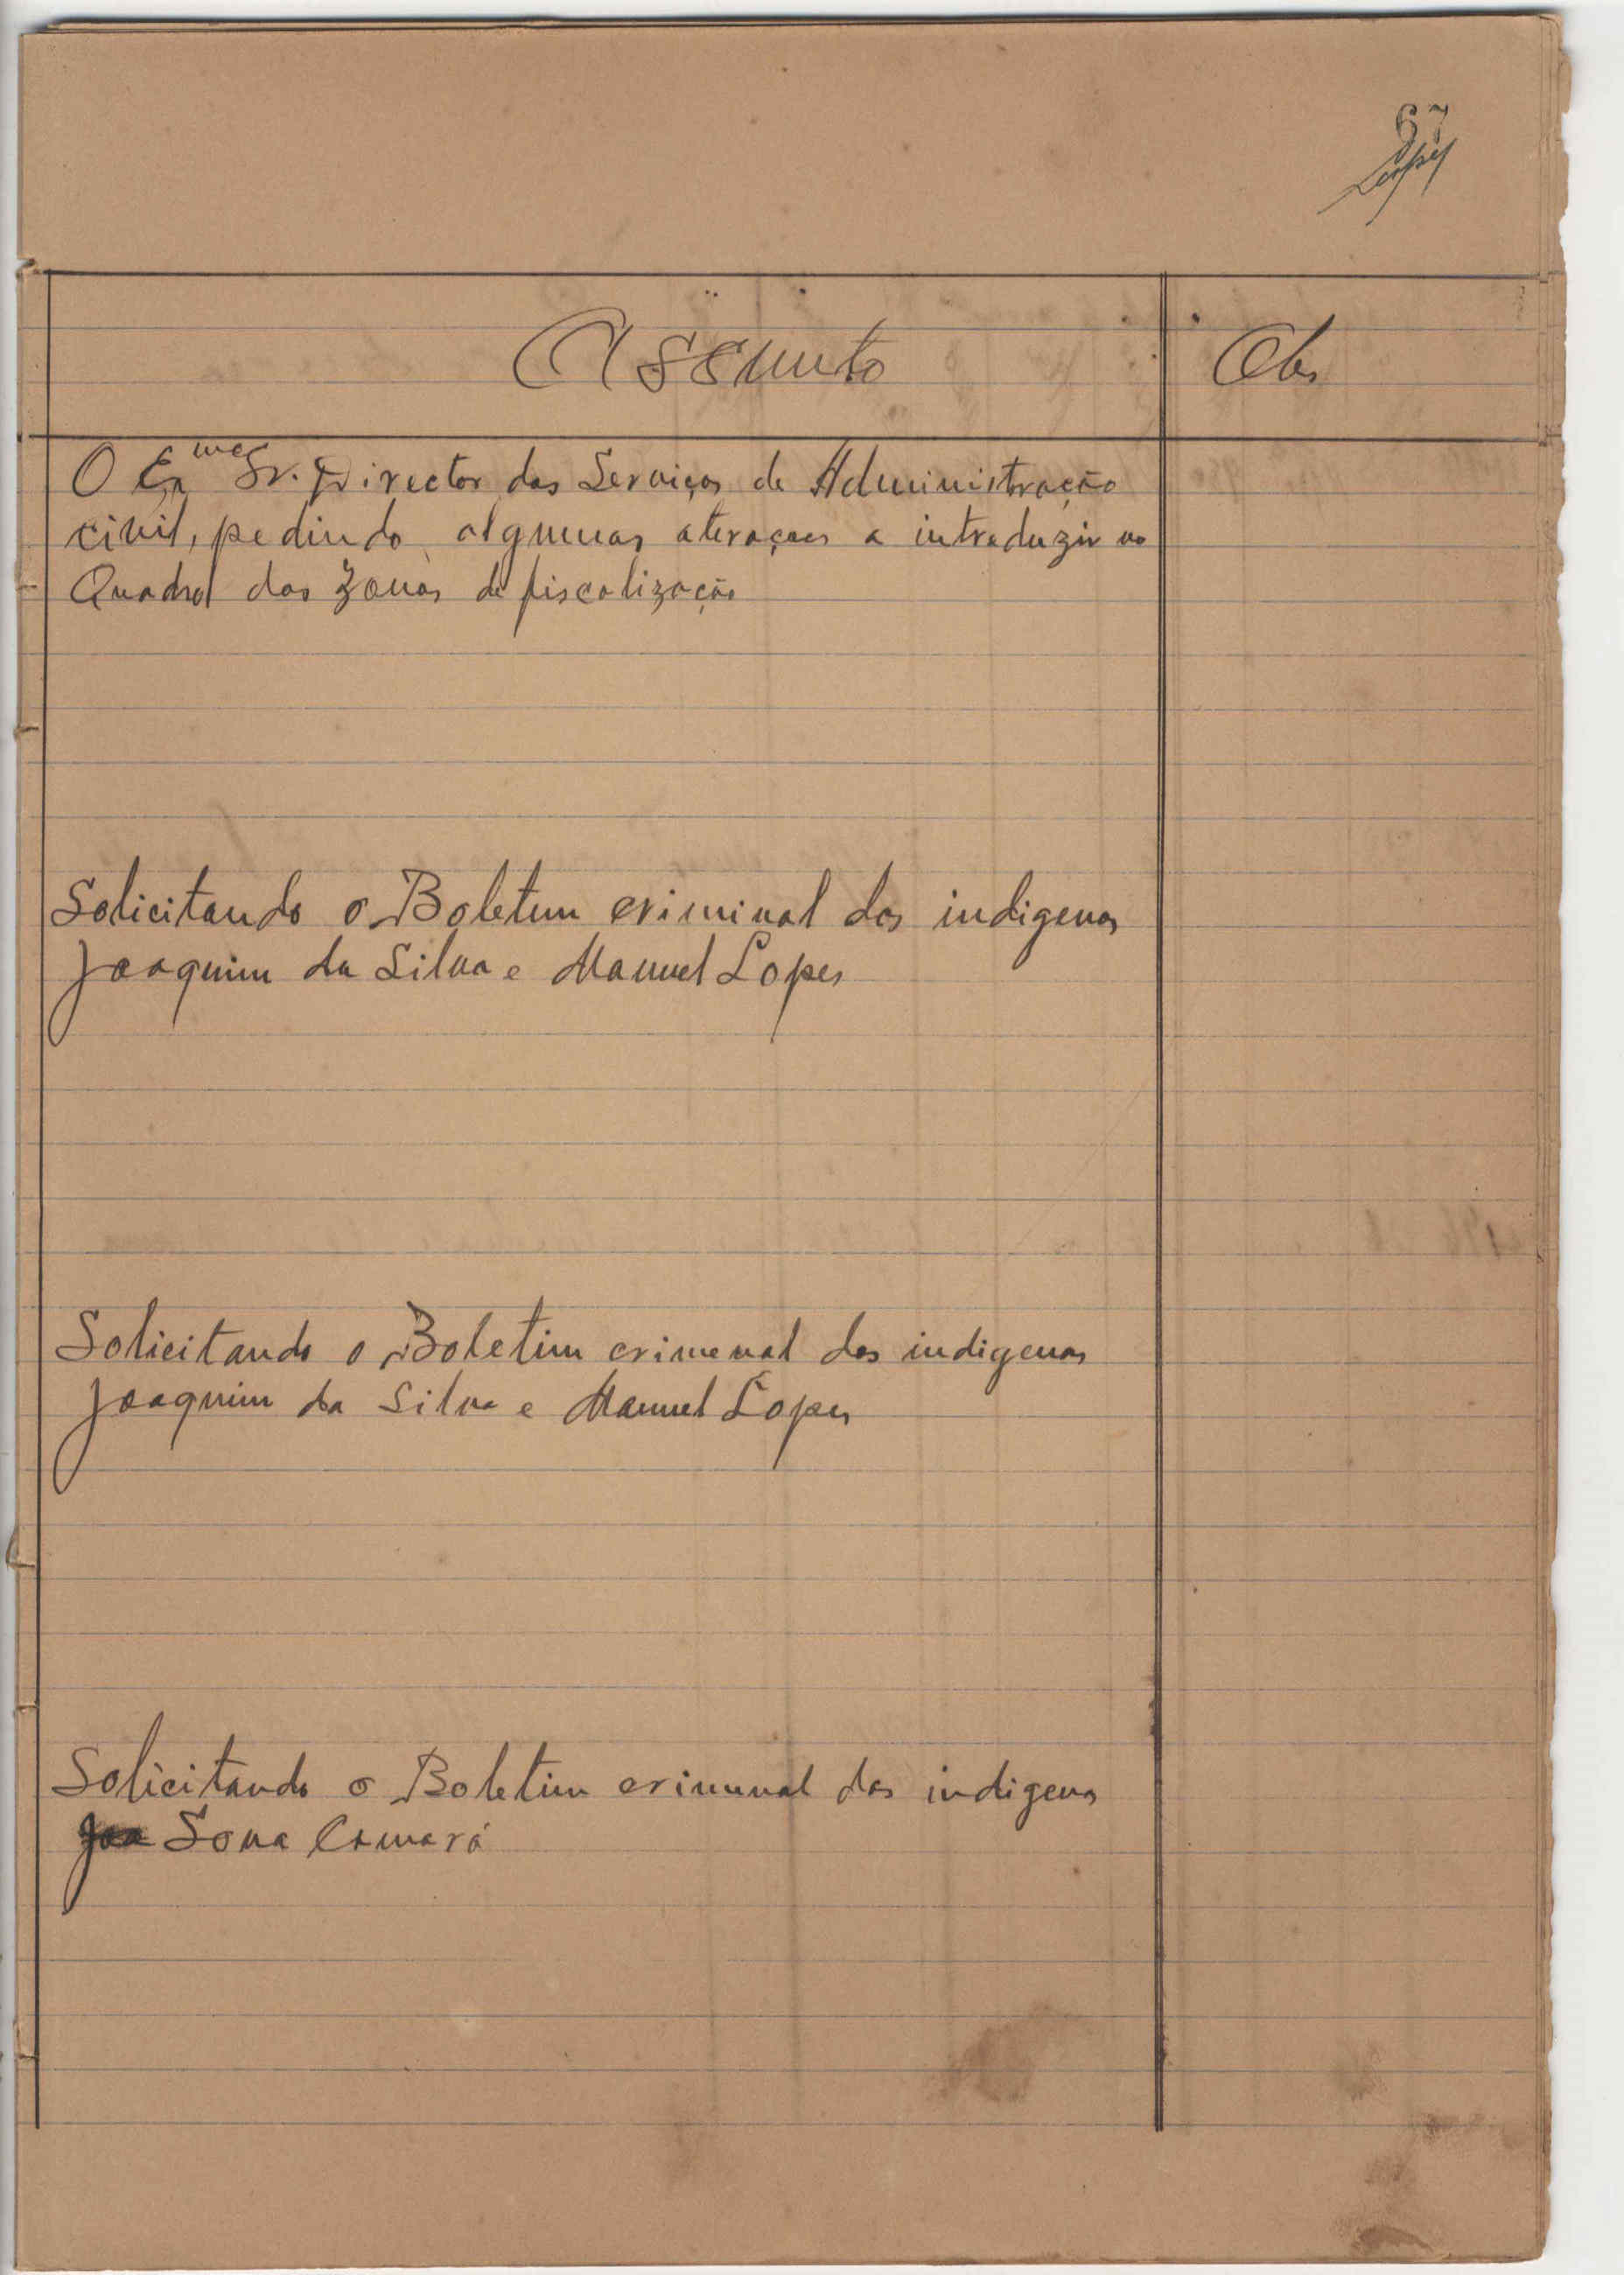 67
Lopes
Assunto
Obs
O Exmo Sr. Director dos Serviços de Administração
civil, pedindo algumas aterações a introduzir no
Quadro das zonas de fiscalização
Solicitando o Boletim criminal dos indigenas
Joaquim da Silva e Manuel Lopes
Solicitando o Boletim crimenal dos indigenas
Joaquim da Silva e Manuel Lopes
Solicitando o Boletim criminal dos indigenas
Sona Camará